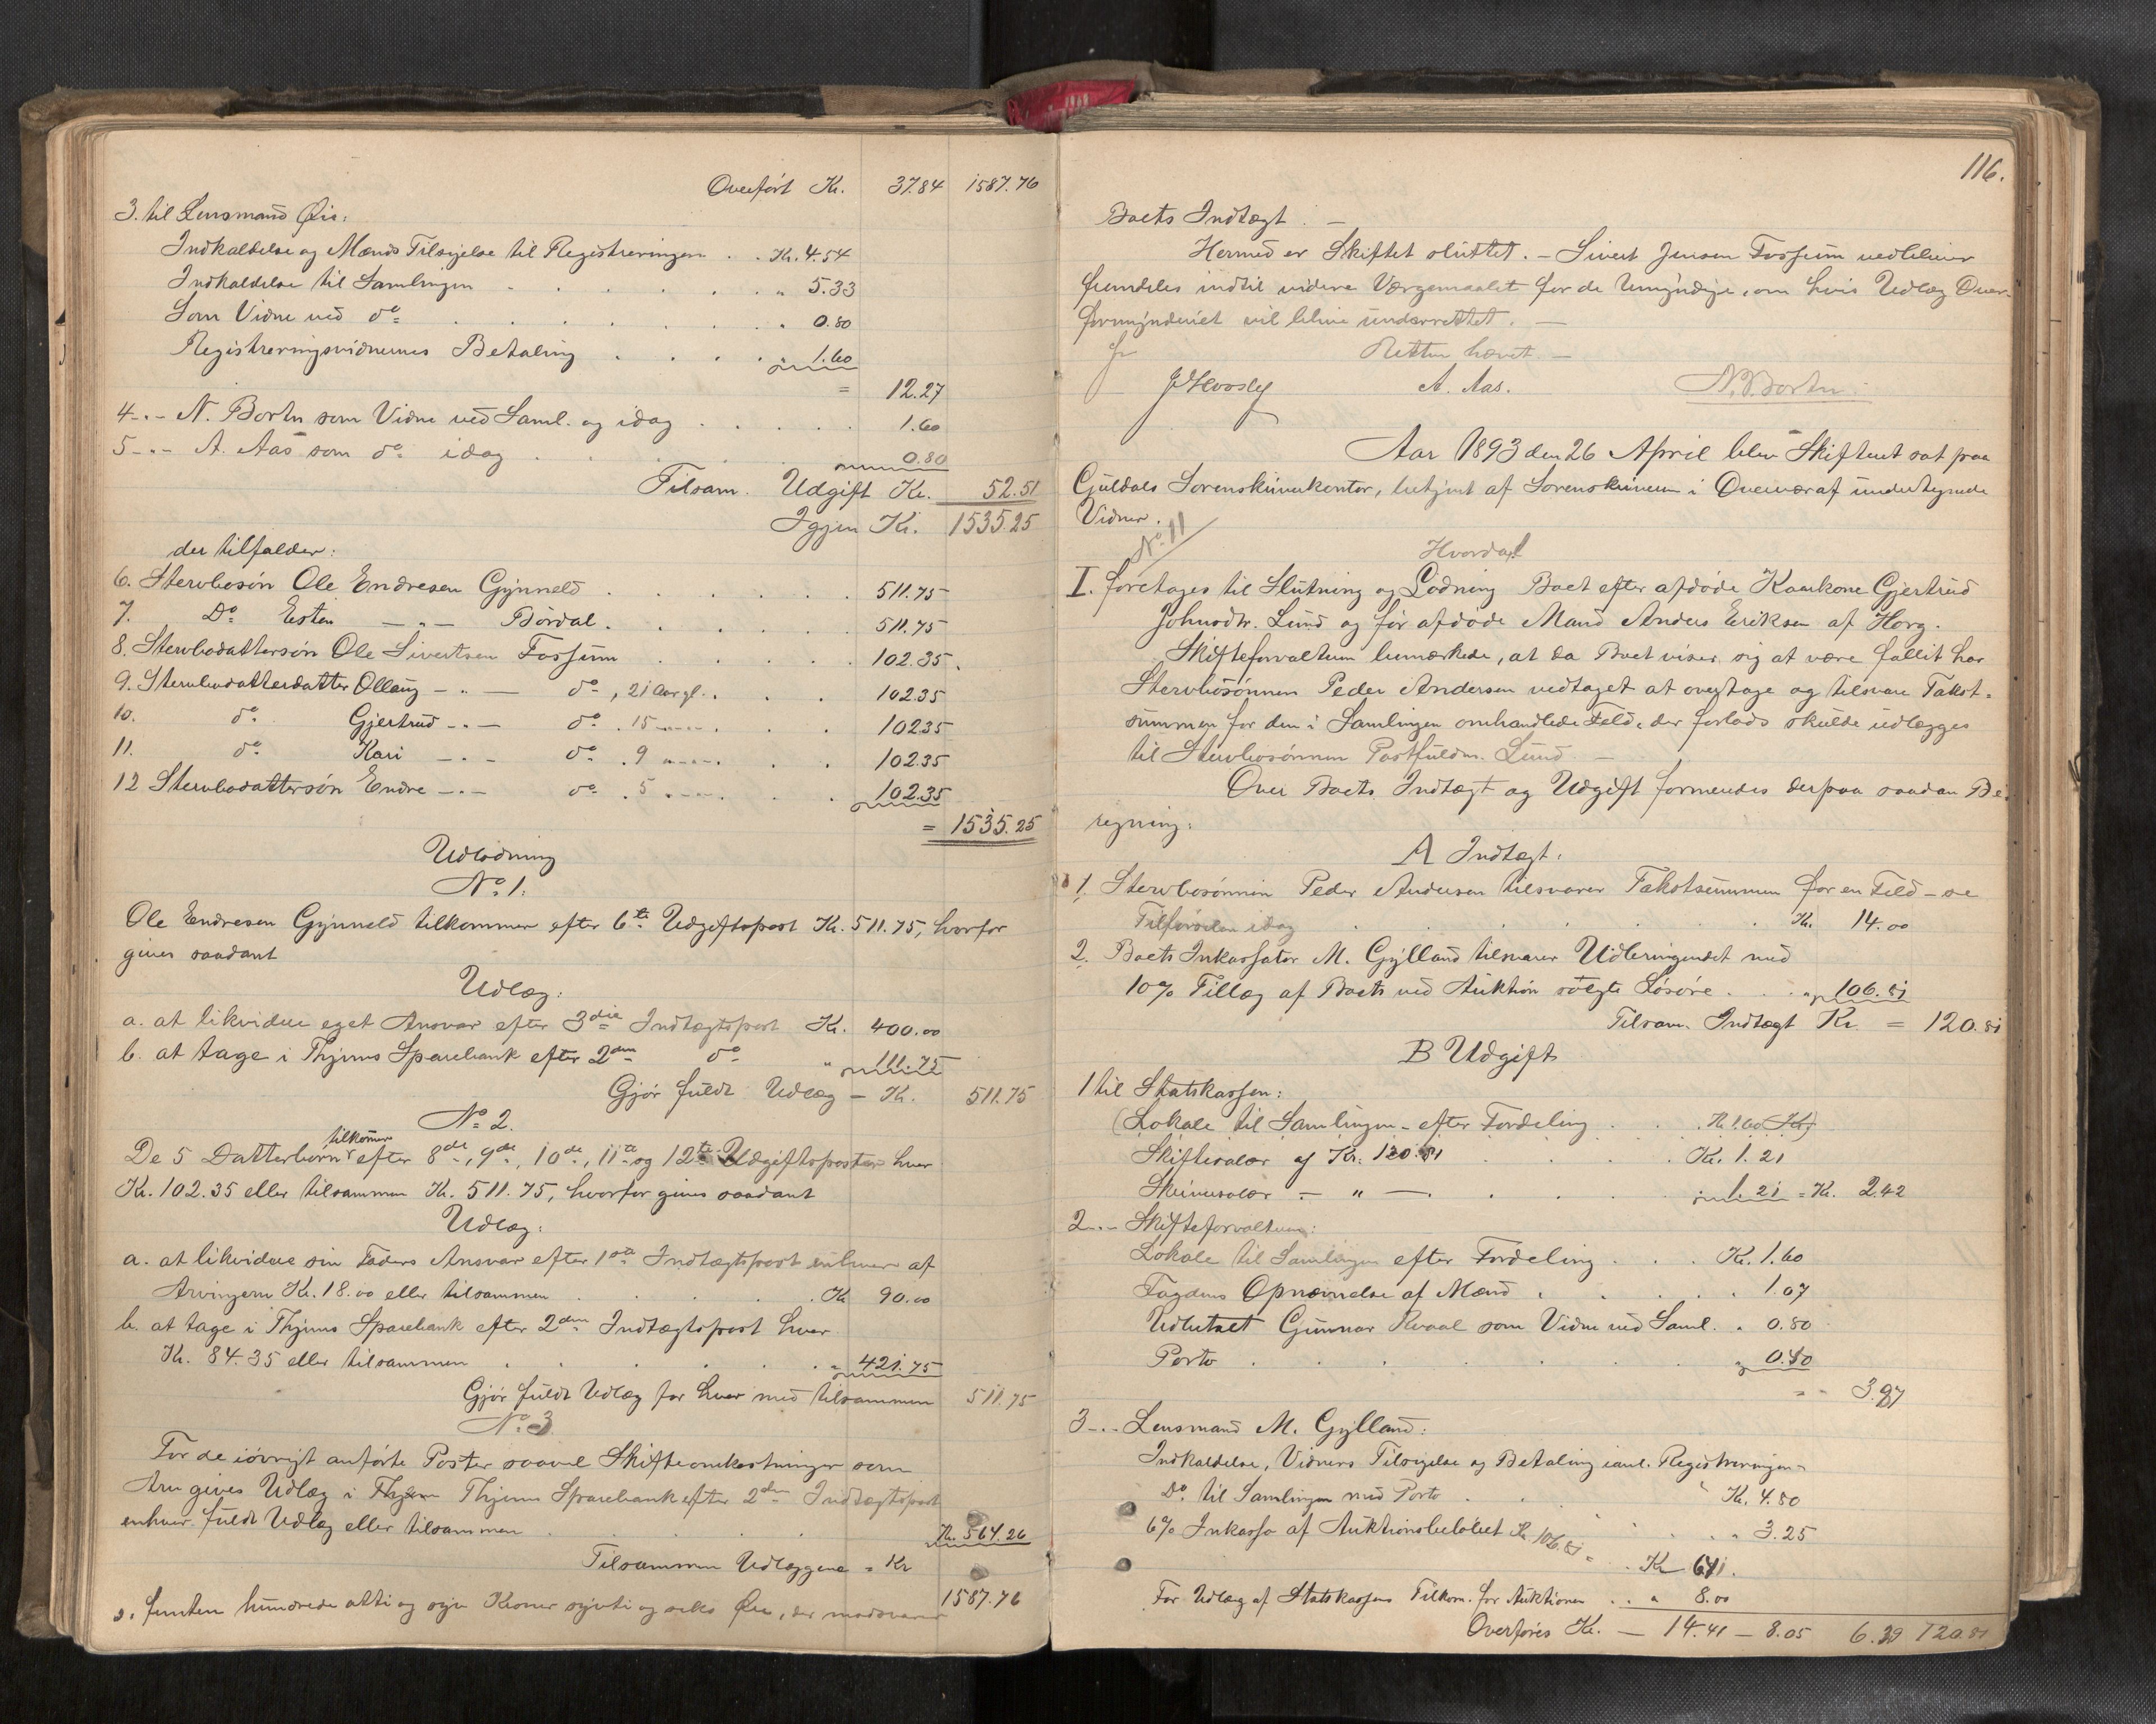 Overført Kr. 37.84 1587.76
3. til Lensmand Øie:
Indkaldelse og Mænds Tilsigelse til Registreringen . . Kr. 4.54
Indkaldelse til Samlingen . . . . . . „ 5.33
Som Vidne ved do . . . . . . . „ 0.80
Registreringsvidnernes Betaling . . . . „ 1.60
= 12.27
4 -„- N. Bortn som Vidne ved Saml. og idag . . . . . 1.60
5 -„- A. Aas som do idag . . . . . 0.80
Tilsam. Udgift Kr. 52.51
Igjen Kr. 1535.25
der tilfalder:
6. Stervbosøn Ole Endresen Gynneld . . . . . . 511.75
7. Do Esten -„- Bordal . . . . . . 511.75
8. Stervbodattersøn Ole Sivertsen Fossum . . . . 102.35.
9. Stervbodatterdatter Ollaug -„- do, 21 Aar gl. . . . 102.35
10. do Gjertrud -„- do . 15 -„- . . . 102.35
11. do Kari -„- do . 9 -„- . . . 102.35
12 Stervbodattersøn Endre -„- do . 5 -„- . . . 102.35
= 1535.25
Udlodning
No 1.
Ole Endresen Gynneld tilkommer efter 6te Udgiftspost Kr. 511.75, hvorfor
gives saadant
Udlæg:
a. at likvidere eget Ansvar efter 3die Indtægtspost Kr. 400.00
b. at tage i Thjems Sparebank efter 2den do „ 111.75
Gjør fuldt Udlæg – Kr. 511.75
No 2.
De 5 Datterbørn tilkommer efter 8de, 9de, 10de, 11te og 12te Udgiftsposter hver
Kr. 102.35 eller tilsammen Kr. 511.75, hvorfor gives saadant
Udlæg:
a. at likvidere sin Faders Ansvar efter 1ste Indtægtspost enhver af
Arvingerne Kr. 18.00 eller tilsammen . . . . Kr 90.00
b. at tage i Thjems Sparebank efter 2den Indtægtspost hver
Kr. 84.35 eller tilsammen . . . . . . „ 421.75
Gjør fuldt Udlæg for hver med tilsammen 511.75
No 3
For de iøvrigt anførte Poster saavel Skifteomkostninger som
Arv gives Udlæg i Thjems Sparebank efter 2den Indtægtspost
enhver fuldt Udlæg eller tilsammen . . . . Kr. 564.26
Tilsammen Udlæggene = Kr 1587.76
femten hundrede otti og syv Kroner sytti og seks Øre, der modsvarer
116.
Boets Indtægt. –
Hermed er Skiftet sluttet. – Sivert Jensen Fossum vedbliver
fremdeles indtil videre Værgemaalet for de Umyndige, om hvis Udlæg Over-
formynderiet vil blive underrettet. –
Retten hævet. –
A. Aas. N. Bortn.
Aar 1893 den 26 April blev Skifteret sat paa
Guldals Sorenskriverkontor, betjent af Sorenskriveren i Overvær af undertegnede
Vidner.
No. 11
Hvorda
I. foretoges til Slutning og Lodning Boet efter afdøde Kaarkone Gjertrud
Johnsdtr. Lund og før afdøde Mand Anders Eriksen af Horg.
Skifteforvalteren bemærkede, at da Boet viser sig at være fallit har
Stervbosønnen Peder Andersen vedtaget at overtage og tilsvare Takst-
summen for den i Samlingen omhandlede Feld, der forlods skulde udlægges
til Stervbosønnen Postfuldm. Lund. –
Over Boets Indtægt og Udgift formeredes derpaa saadan Be-
regning:
A Indtægt:
1. Stervbosønnen Peder Andersen tilsvarer Takstsummen for en Feld – se
Tilførselen idag . . . . . . Kr. 14.00
2. Boets Inkassator M. Gylland tilsvarer Udbringendet med
10% Tillæg af Boets ved Auktion solgte Løsøre . . . „ 106.81
Tilsam. Indtægt Kr. = 120.81
B Udgift
1 til Statskassen:
(Lokale til Samlingen – efter Fordeling . . . Kr. 1.60
Skiftesalær af Kr. 120.81 . . . . Kr. 1.21
Skriversalær – „ – . . . . „ 1.21 = Kr. 2.42
2 -„- Skifteforvalteren:
Lokale til Samlingen efter Fordeling . . . Kr. 1.60
Fogdens Opnævnelse af Mænd . . . . . 1.07
Udbetalt Gunnar Kvaal som Vidne ved Saml. „ 0.80
Porto . . . . . . . „ 0.40
= „ 3.87
3 -„- Lensmand M. Gylland:
Indkaldelse, Vidners Tilsigelse og Betaling saml. Registreringen
Do. til Samlingen med Porto . . . Kr. 4.80
6% Inkasso af Auktionsbeløbet Kr. 106.81 = . . . „ 3.25
. Kr 641.
For Udlæg af Statskassens Tilkom. for Auktionen . . „ 8.00
Overføres Kr. – 14.41 – 8.05 6.29 120.81